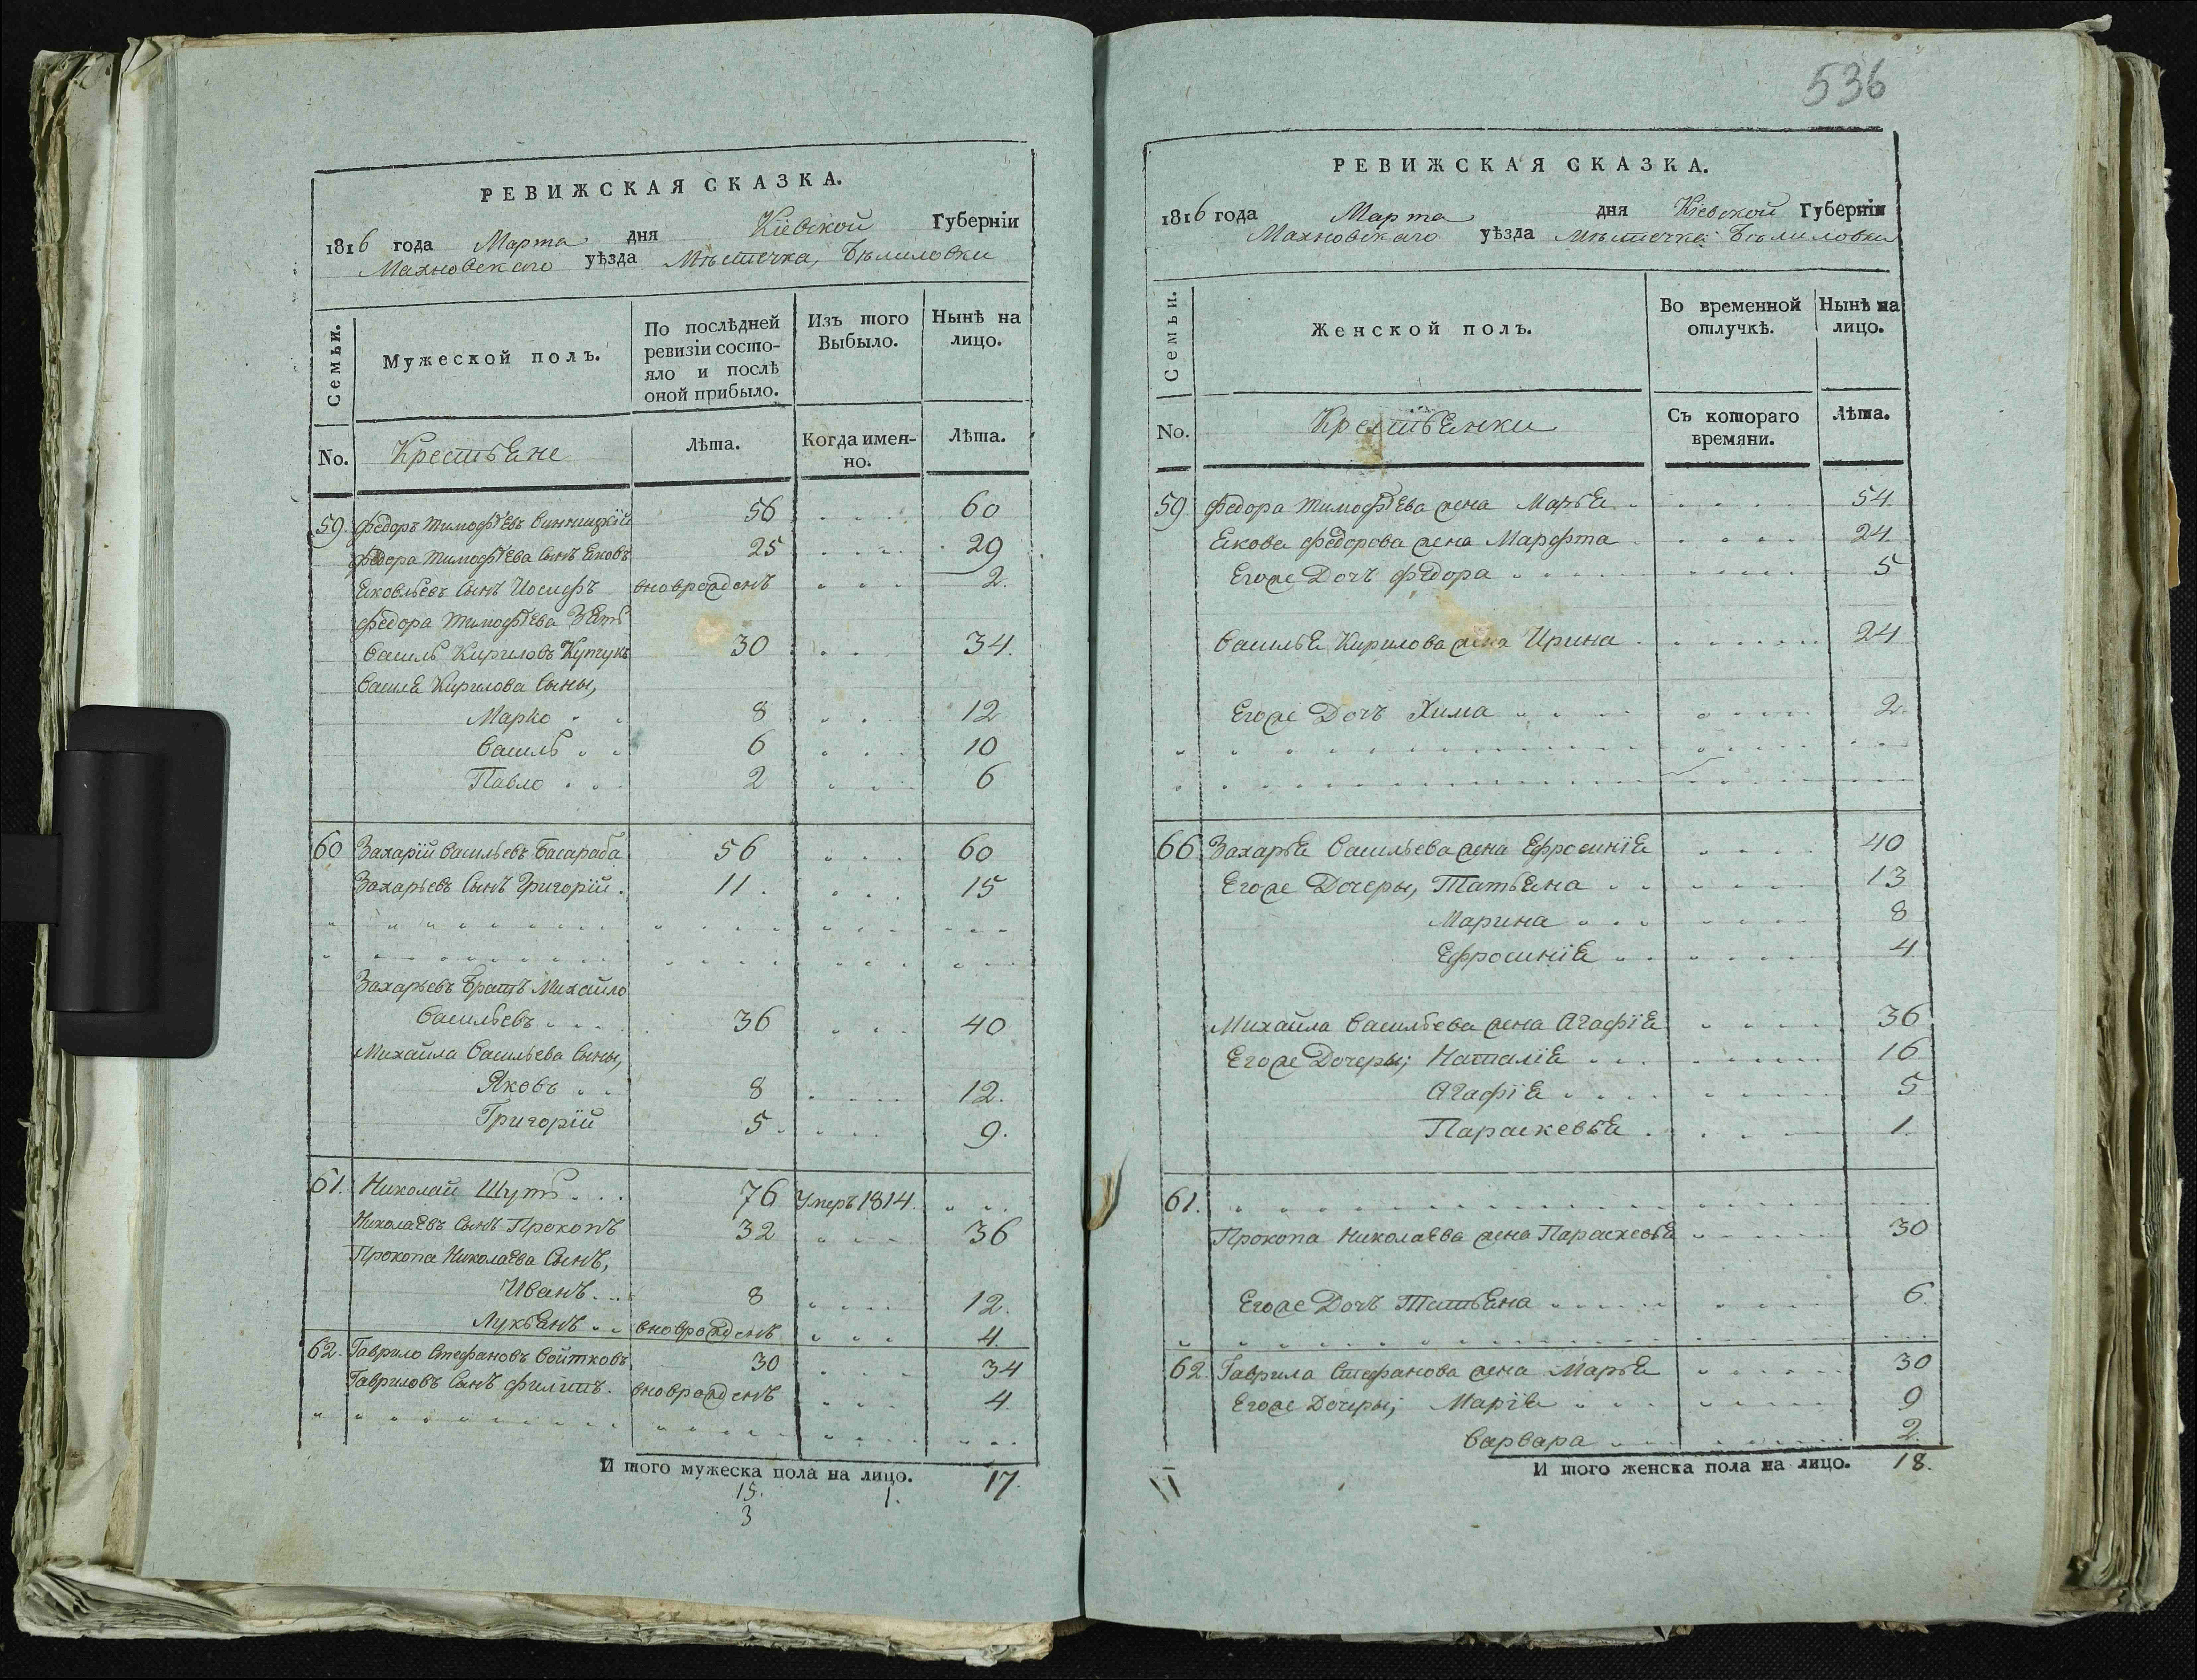 РЕВИЖСКАЯ СКАЗКА.
1816 года Марта дня Кіевской Губерніи
Махновскаго уѣзда Мѣстечка, Бѣлиловки
Семьи.
Мужеской полъ.
По послѣдней ревизіи состо-
яло и послѣ
оной прибыло.
Изъ того Выбыло.
Нынѣ на лицо.
No. Крестьяне Лѣта. Когда имен-
но. Лѣта.
59. Федоръ Тимофѣевъ Винницкій 56 60
Федора Тимофѣева Сынъ Яковъ 25 29
Яковлевъ Сынъ Иосифъ вноврожденъ 2.
Федора Тимофѣева Зять
Василь Кириловъ Купчукъ 30 34.
Василя Кирилова Сыны,
Марко 8 12
Василь 6 10
Павло 2 6
60 Захарій Васильевъ Басараба 56 60
Захарьевъ Сынъ Григорій. 11. 15
Захарьевъ Братъ Михайло
Васильевъ 36 40
Михайла Васильева Сыны,
Яковъ 8 12.
Григорій 5. 9.
61. Николай Шутъ 76 Умеръ 1814.
Николаевъ Сынъ Прокопъ 32 36
Прокопа Николаева Сынъ,
Иванъ 8 12.
Лукьянъ вноврожденъ 4.
62. Гаврило Стефановъ Войтковъ 30 34
Гавриловъ Сынъ Филипъ. вноврожденъ 4.
И того мужеска пола на лицо. 17.
15. 1.
3
536
РЕВИЖСКАЯ СКАЗКА.
1816 года Марта дня Кіевской Губерніи
Махновскаго уѣзда Мѣстечка Бѣлиловки
Семьи.
Женской полъ.
Во временной отлучкѣ.
Нынѣ на лицо.
No. Крестьянки Съ котораго времяни. Лѣта.
59 Федора Тимофѣева жена Марья 54
Якова Федорова жена Марфта 24
Егоже Дочъ Федора 5
Василья Кирилова жена Ирина 24
Егоже Дочъ Хима 2.
66. Захарья Васильева жена Ефросинія 40
Егоже Дочеры, Татьяна 13
Марина 8
Ефросинія 4
Михайла Васильева жена Агафія 36
Егоже Дочеры; Наталія 16
Агафія 5
Параскевья 1.
61.
Прокопа Николаева жена Параскевья 30
Егоже Дочъ Татьяна 6.
62. Гаврила Стефанова жена Марья 30
Егоже Дочеры; Марія 9
Варвара 2.
И того женска пола на лицо. 18.